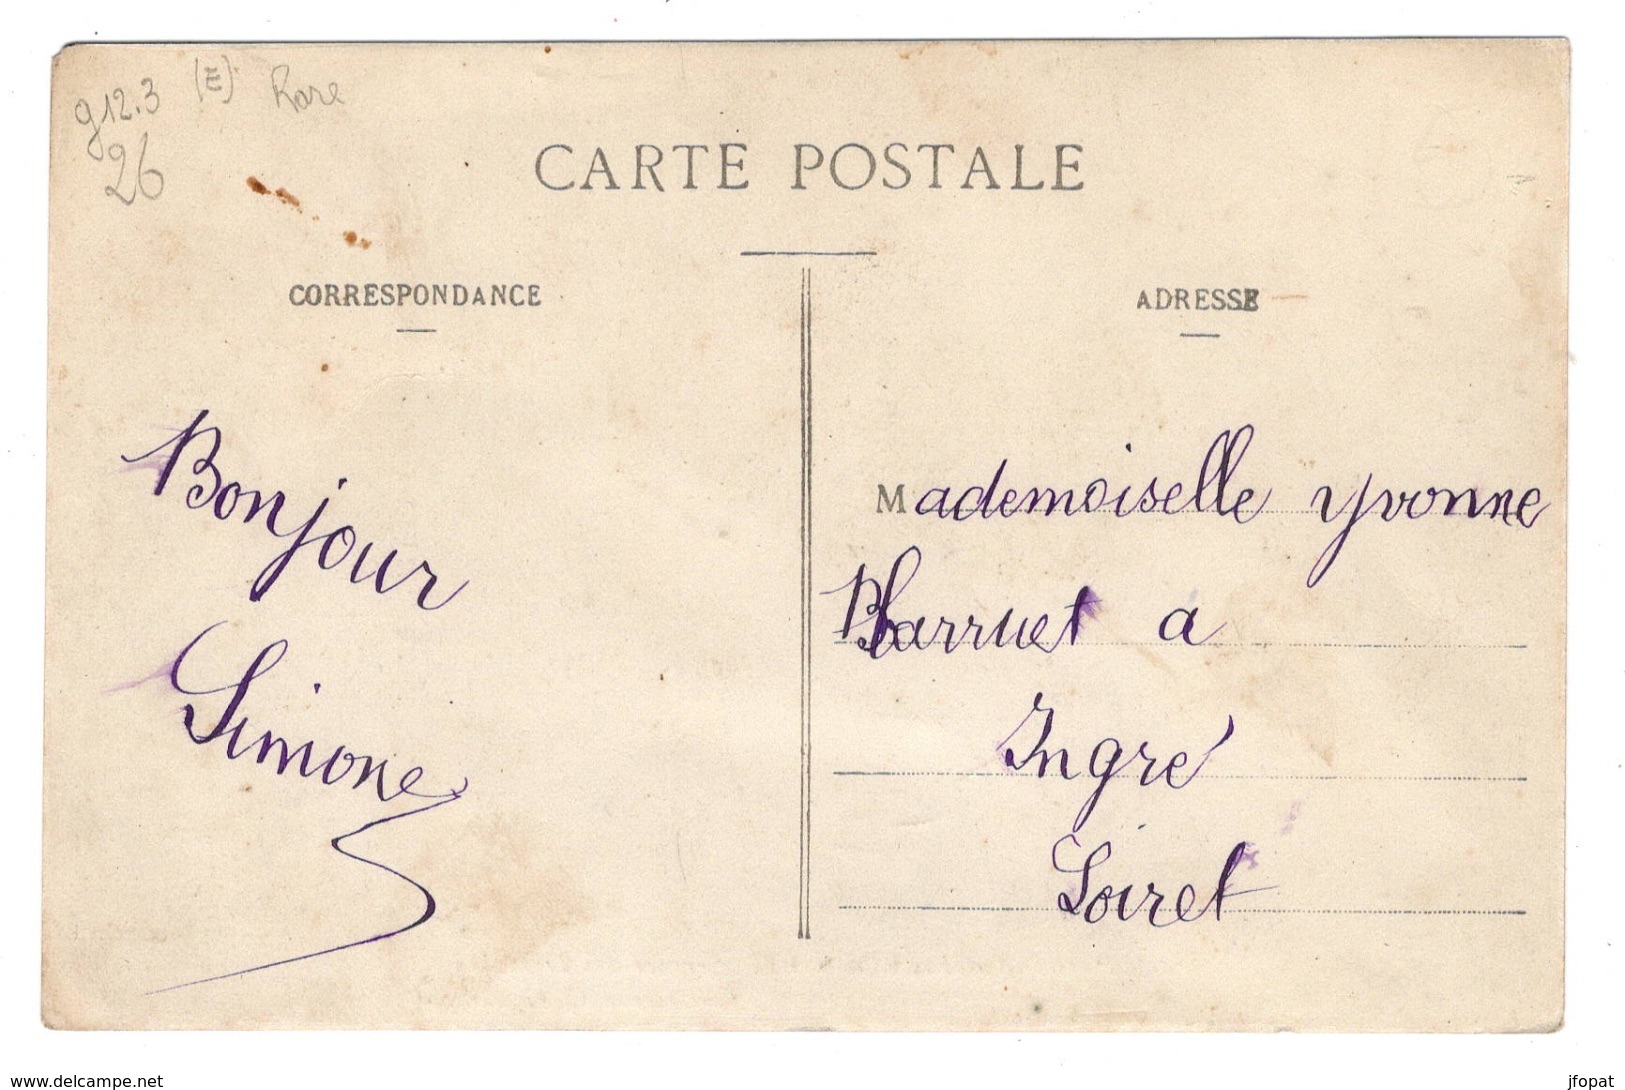 g12.3 (E) Rare
26
CARTE POSTALE
CORRESPONDANCE
ADRESSE
Bonjour
Simone
Mademoiselle Yvonne
Barruet a
Ingré
Loiret
www.delcampe.net
jfopat